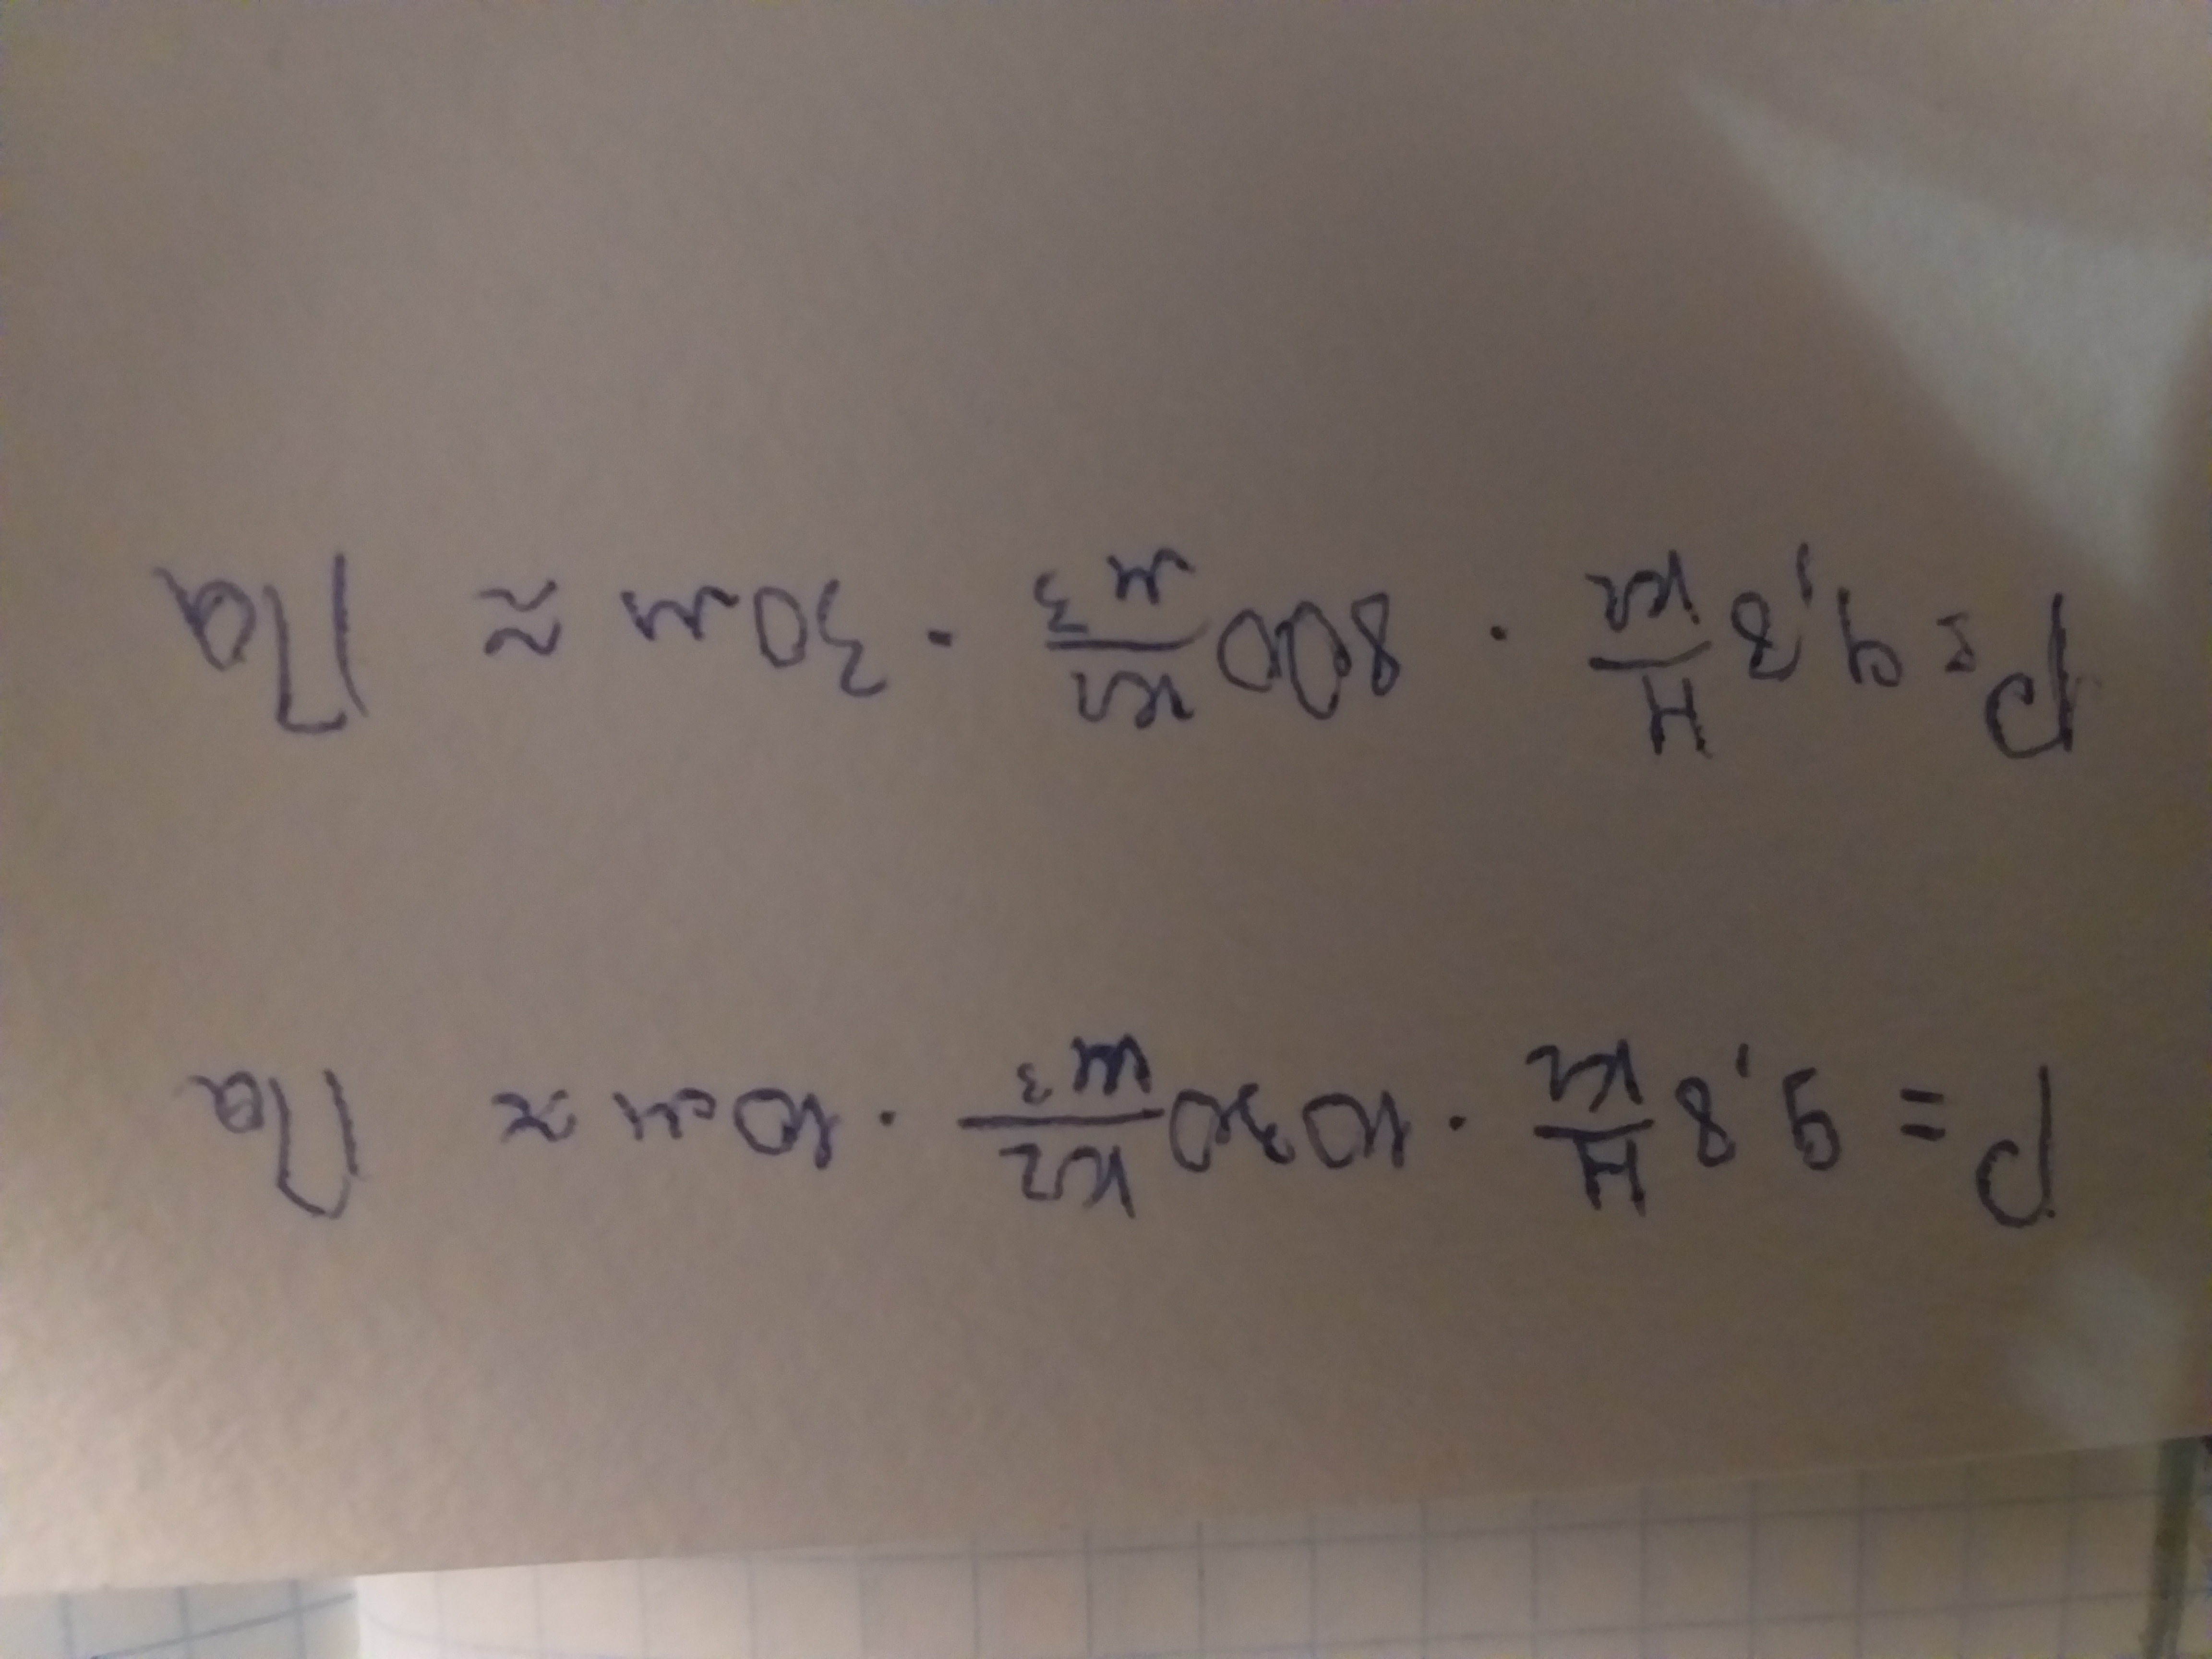 P = 9,8 Н/кг · 1030 кг/м³ · 10м ≈ Па
P = 9,8 Н/кг · 800 кг/м³ · 30м ≈ Па